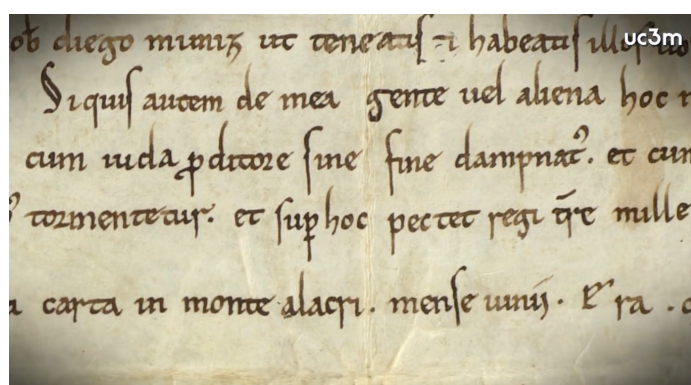 uc3m
ob diego muniz ut teneatis ⁊ habeatis illos
Siquis autem de mea gente uel aliena hoc
cum iuda ꝓditore sine fine dampnat᾽. et cum
tormentetur. et suꝑ hoc pectet regi tr̄e mille
carta in monte alacri. mense iunij. Era.